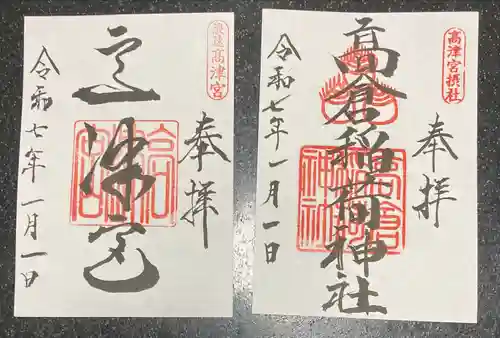 浪速高津宮
奉拝
高津宮
令和七年一月一日
高津宮摂社
奉拝
高倉稲荷神社
令和七年一月一日